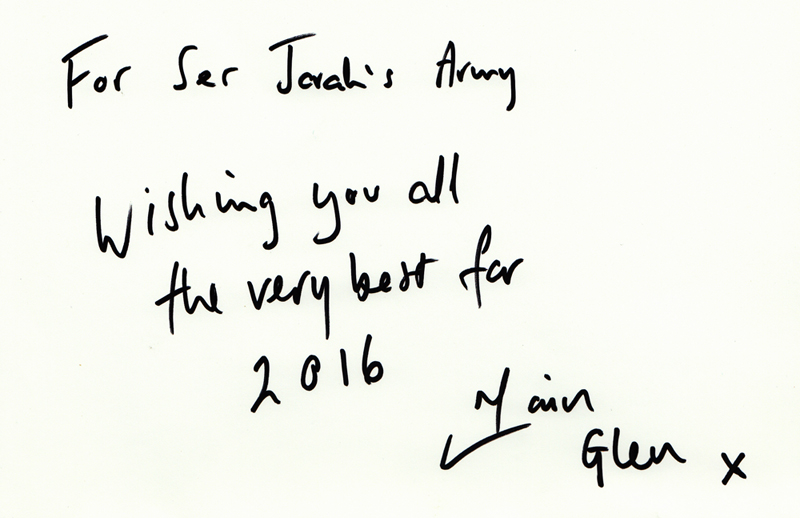 For Ser Jorah's Army
Wishing you all
the very best for
2016
Iain
Glen x